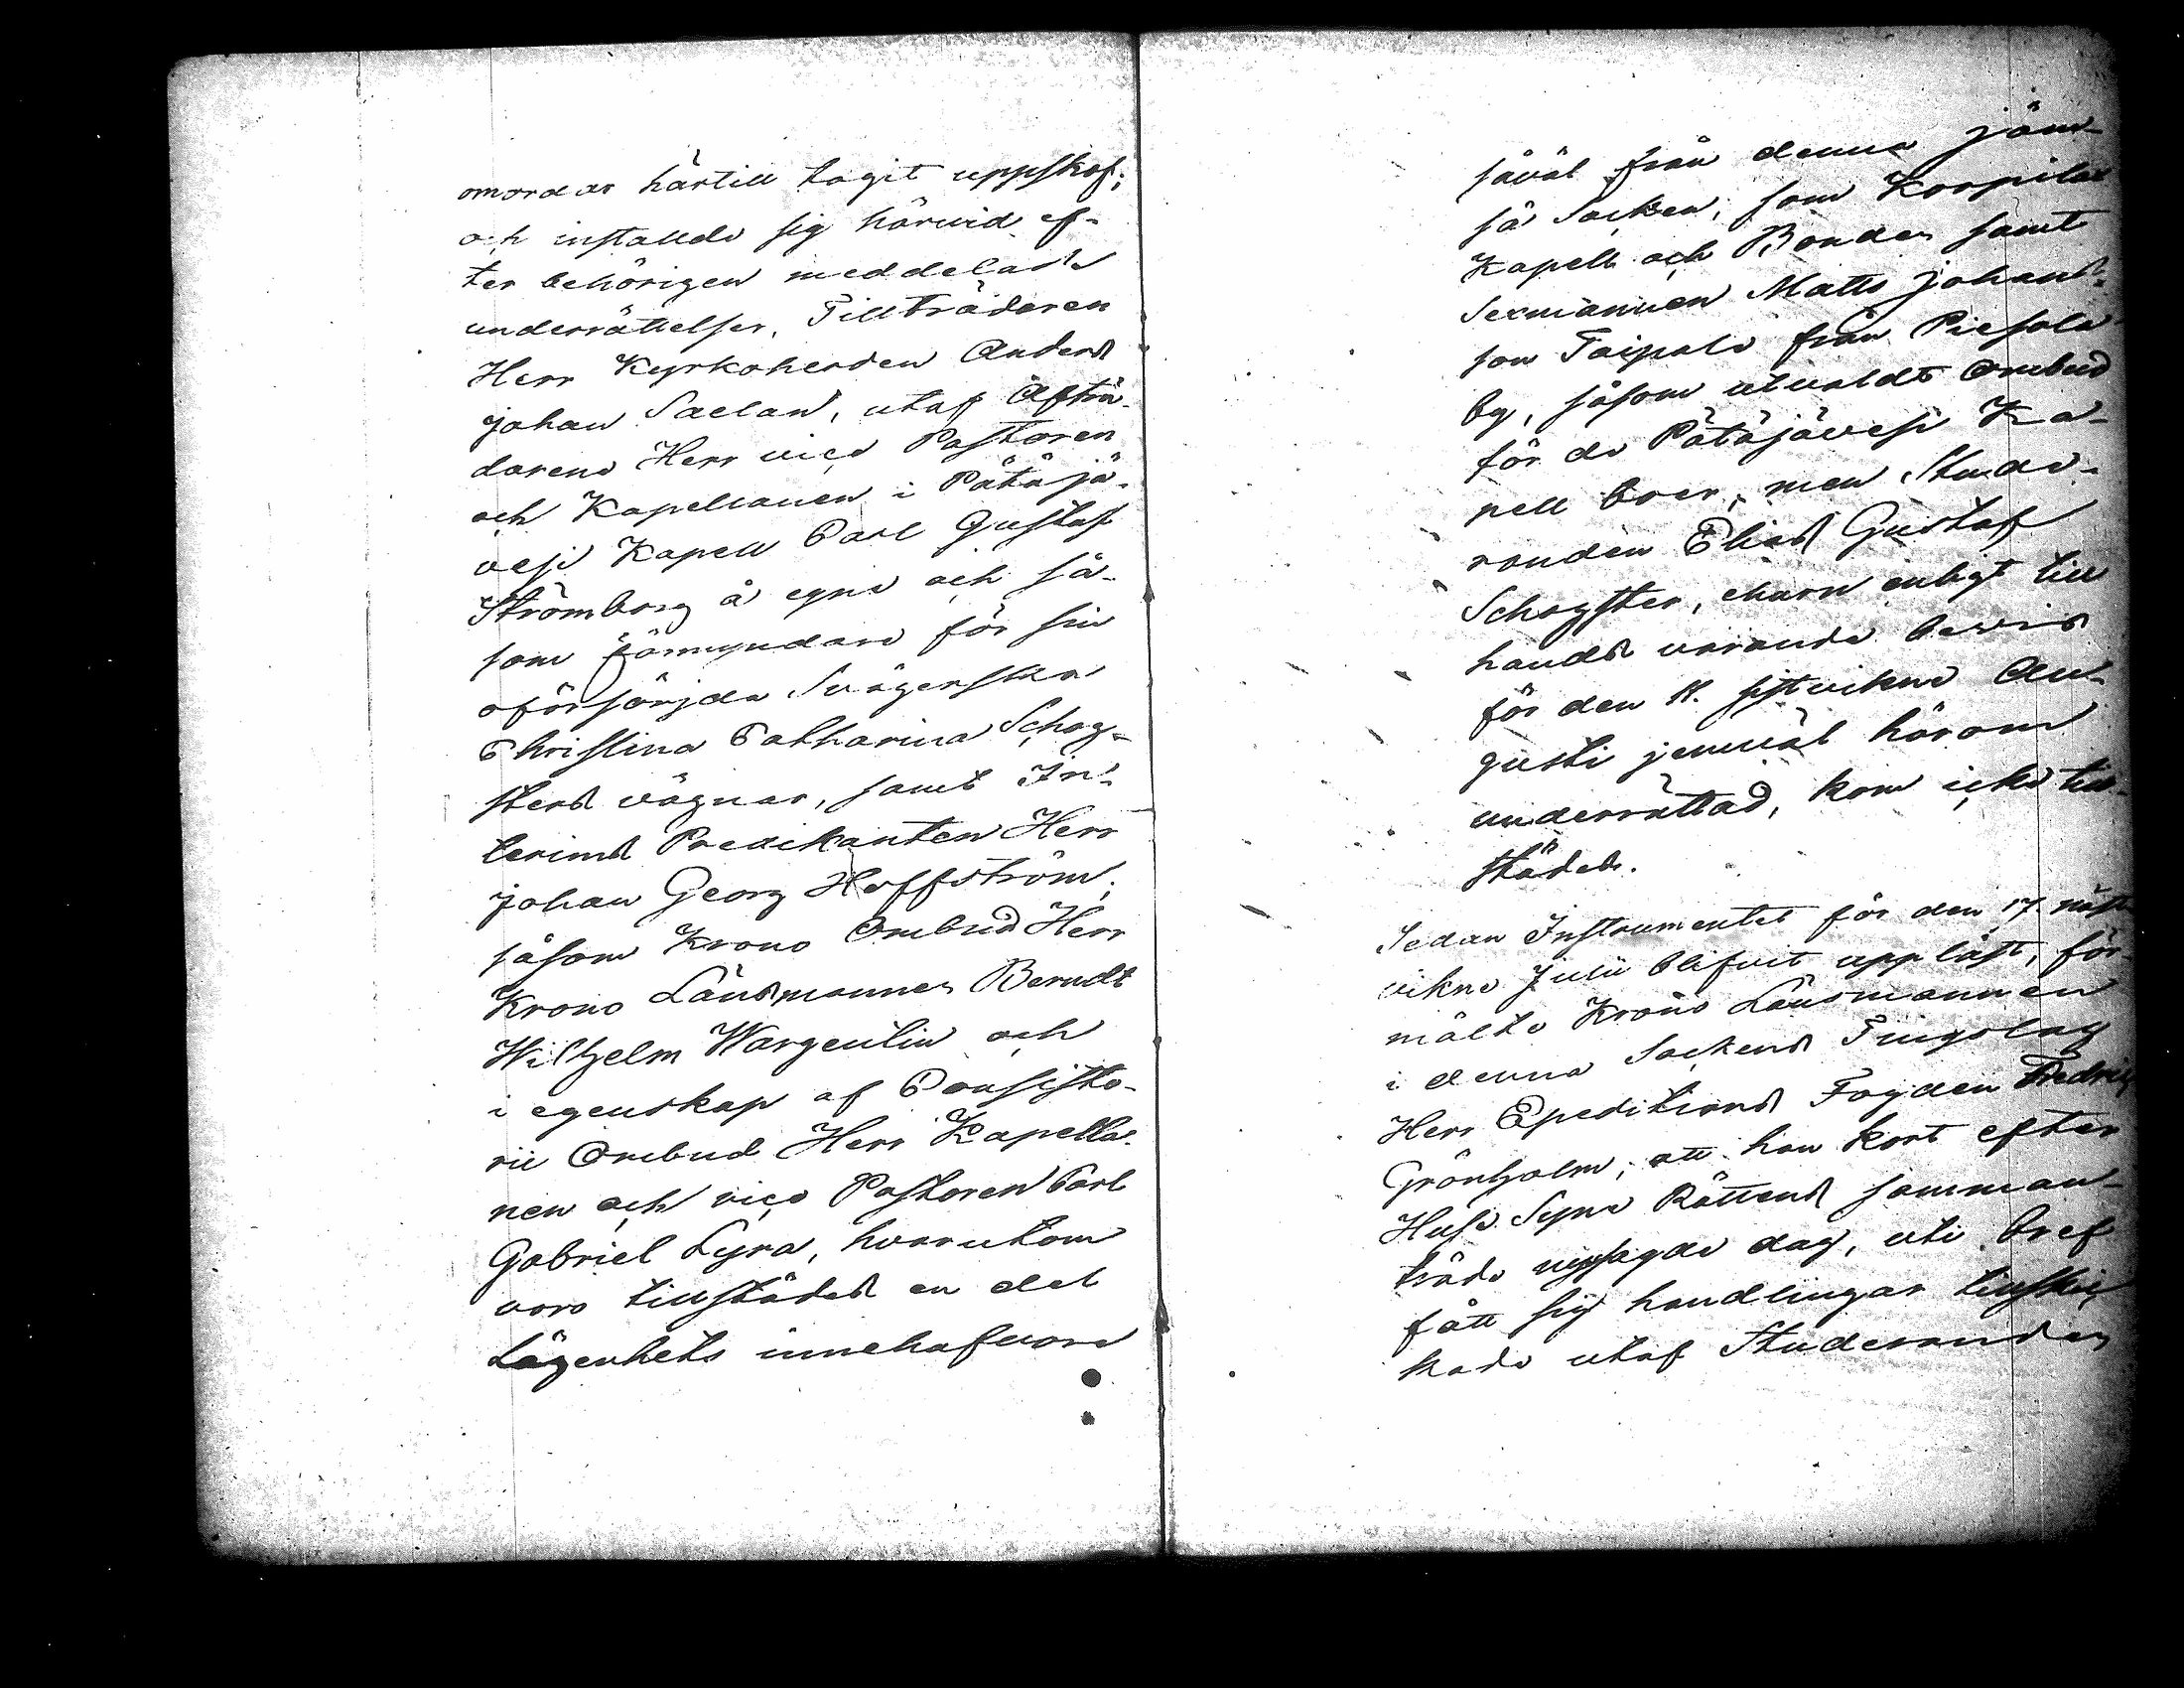 omordas härtill tagit uppskof;
och instälde sig härvid ef-
ter behörigen meddelade
underrättelser, Tillträdaren
Herr Kyrkoherden Anders
Johan Saelan, utaf Afträ-
darene Herr vice Pastoren
och Kapellanen i Pätäjä-
vesi Kapell Carl Gustaf
Strömborg å egne och så-
som förmyndare för sin
oförsörjda Svägerskas
Christina Catharina Schog-
sters vägnar, samt In-
terims Predikanten Herr
Johan Georg Hoffström,
såsom Krono Ombud Herr
Krono Länsmannen Berndt
Wilhelm Wargentin och
i egenskap af Consisto-
rii Ombud Herr Kapella-
nen och vice Pastoren Carl
Gabriel Lyra, hvarutom
voro tillstädes en del
Lägenhets innehafvare
såväl från denna Jäm-
sä Socken, som Korpilax
Kapell och Bonden samt
Sexmannen Matts Johans-
son Taipale från Piesala
by, såsom utvaldt Ombud
för de Pätäjävesi Ka-
pell boer, men Stude-
randen Elias Gustaf
Schogster, ehuru enligt till
hands varande bevis
för den 11. sistvikne Au-
gusti jemväl härom
underrättad, kom icke till-
städes.
Sedan Instrumentet för den 17. näst
vikne Julii blifvit uppläst, för-
mälte Krono Länsmannen
i denna Sockens Tingslag
Herr Expeditions Fogden Fredric
Grönholm, att han kort efter
Huse Syne Rättens samman-
träde nyssagde dag, uti bref
fått sig handlingar tillskic-
kade utaf Studeranden